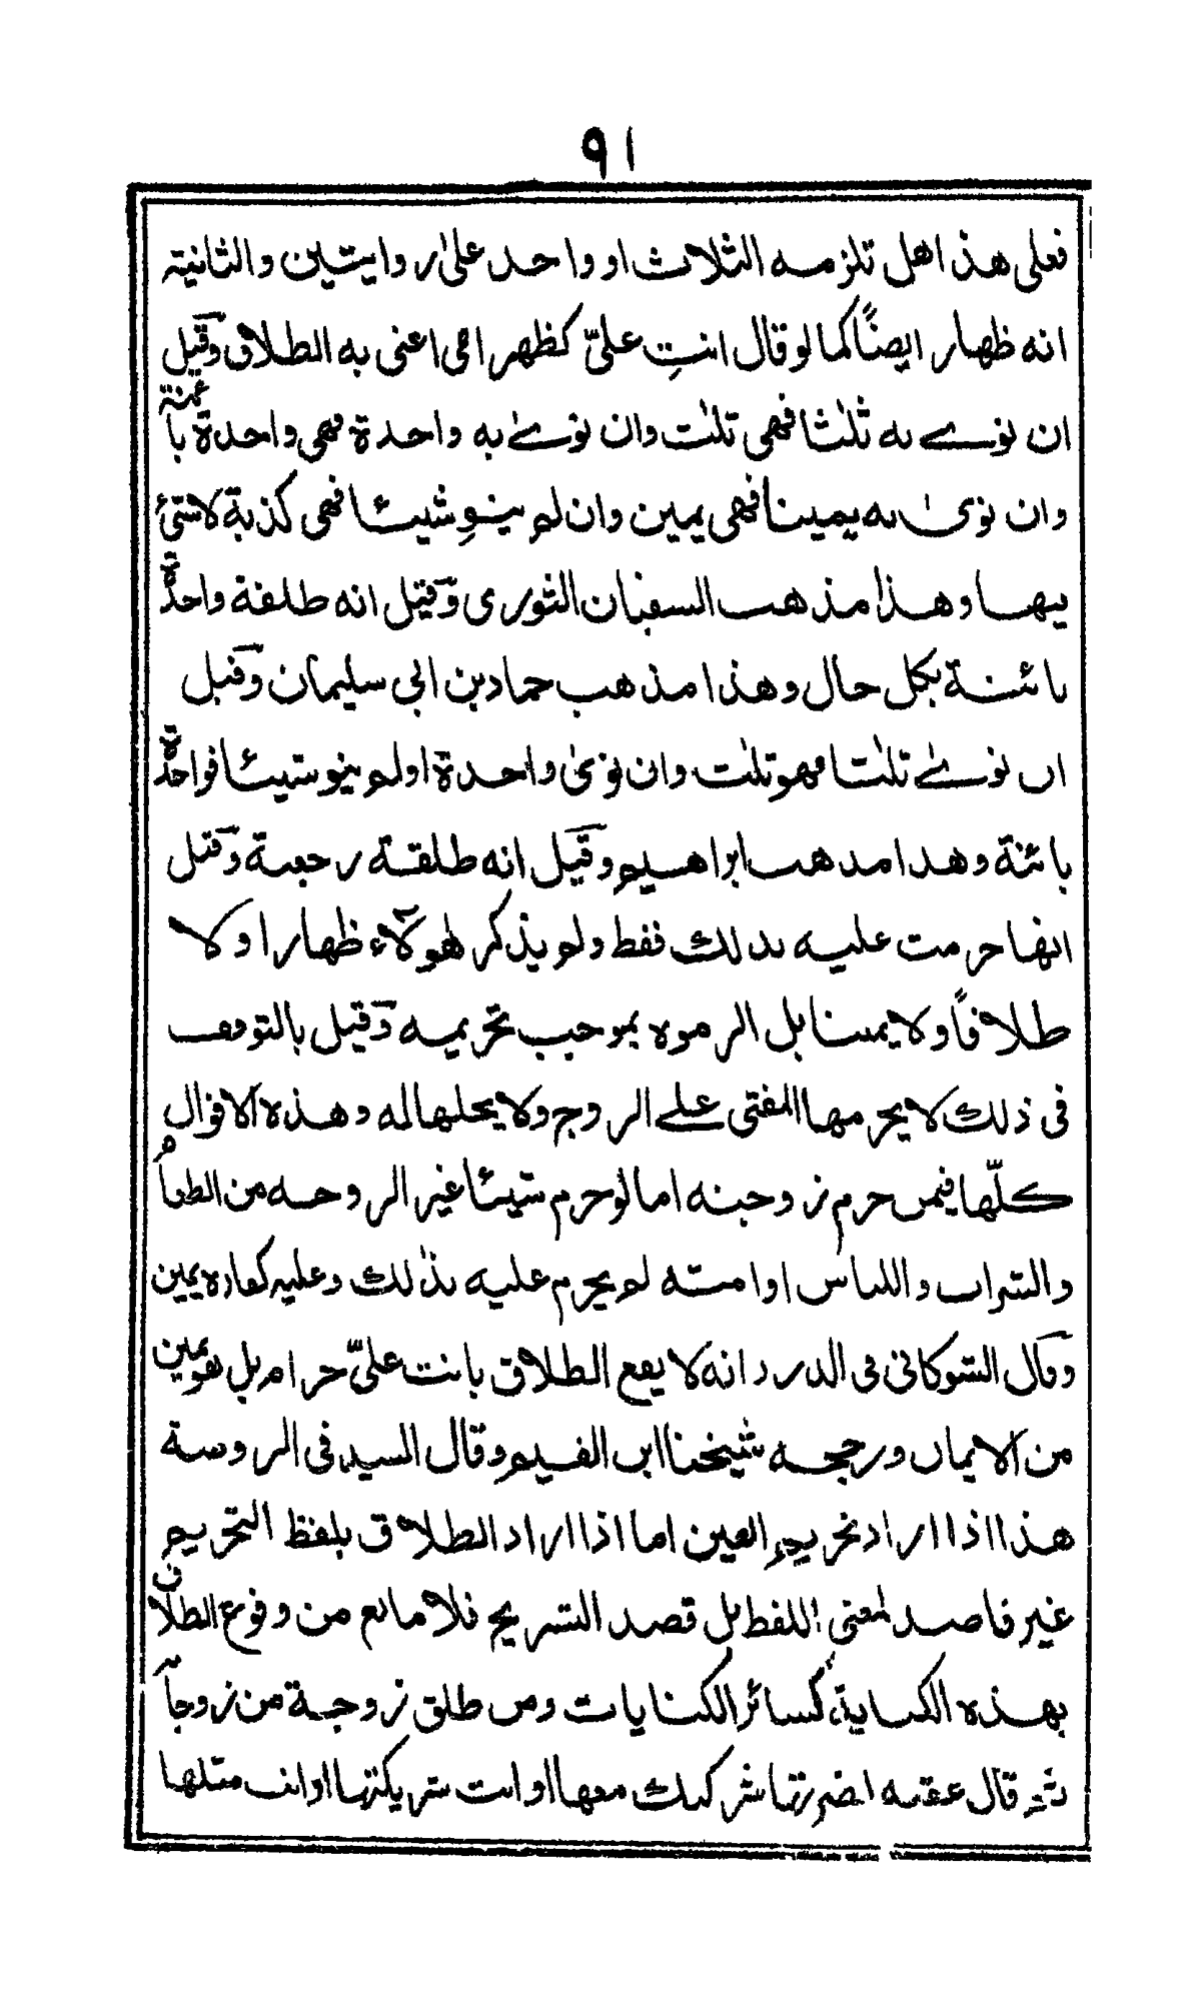 ٩١
فعلى هذا هل تلزمه الثلاث او واحد على روايتين والثانية
انه ظهار ايضًا كما لو قال انتِ عليّ كظهر امي اعني به الطلاق وقيل
ان نوى به ثلثا فهي ثلث وان نوى به واحدة فهي واحدة بائنة
وان نوى به يمينا فهي يمين وان لم ينوِ شيئا فهي كذبة لا شئ
فيها وهذا مذهب السفيان الثوري وقيل انه طلقة واحدة
بائنة بكل حال وهذا مذهب حماد بن ابي سليمان وقيل
ان نوى ثلثا فهو ثلث وان نوى واحدة او لم ينو شيئا فواحدة
بائنة وهذا مذهب ابراهيم وقيل انه طلقة رجعية وقيل
انها حرمت عليه بذلك فقط ولم يذكر هؤلاء ظهارا ولا
طلاقاً ولا يمينا بل الزموه بموجب تحريمه وقيل بالتوقف
في ذلك لا يحرمها المفتى على الزوج ولا يحلها له وهذه الاقوال
كلّها فيمن حرم زوجته اما لو حرم شيئا غير الزوجه من الطعام
والشراب واللباس او امته لم يحرم عليه بذلك وعليه كفاره يمين
وقال الشوكاني في الدرر انه لا يقع الطلاق بانت عليّ حرام بل هو يمين
من الايمان ورجحه شيخنا ابن القيم وقال السيد في الروضة
هذا اذا اراد تحريم العين اما اذا اراد الطلاق بلفظ التحريم
غير قاصد لمعنى اللفظ بل قصد التسريح فلا مانع من وقوع الطلاق
بهذه الكناية كسائر الكنايات ومن طلق زوجة من زوجاته
ثم قال عقبه لضرتها شركتك معها او انت شريكتها او انت مثلها